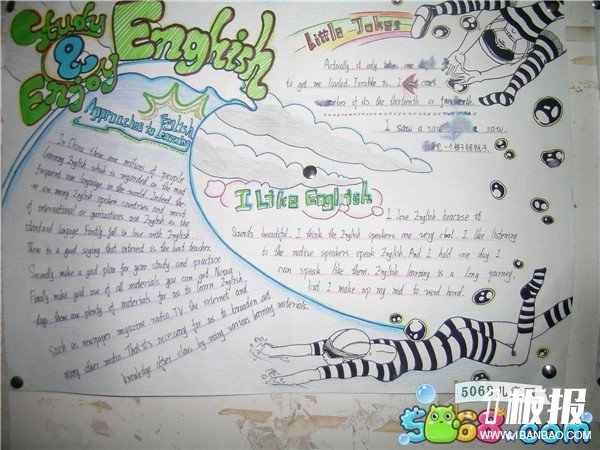 Study
&
Enjoy
English
Little Jokes
Actually it only takes me
to get me loaded. Trouble is. I can't
remember if it's the thirteenth or fourteenth.
I saw a saw saw.
English
Approaches to Learning
In China, there are millions of people
learning English which is regarded as the most
frequent use language in the world. Indeed there
are many English spoken countries and most
of international organizations use English as the
standard language. Firstly, fall in love with English
There is a good saying that interest is the best teacher.
Secondly, make a good plan for your study and practice
Finally make good use of all materials you can get. Nowa
days, there are plenty of materials for us to learn English
Such as newspaper, magazine, radio, TV, the internet and
many other media. That it's necessary for us to broaden our
knowledge after class by using various learning materials.
I Like English
I love English, because it
Sounds beautiful. I think the English speakers are very cool. I like listening
to the native speakers speak English. And I hold one day I
can speak like them. English learning is a long journey,
but I make up my mid to word hard.
5068儿
板报
5068.com
WWW.1BANBAO.COM